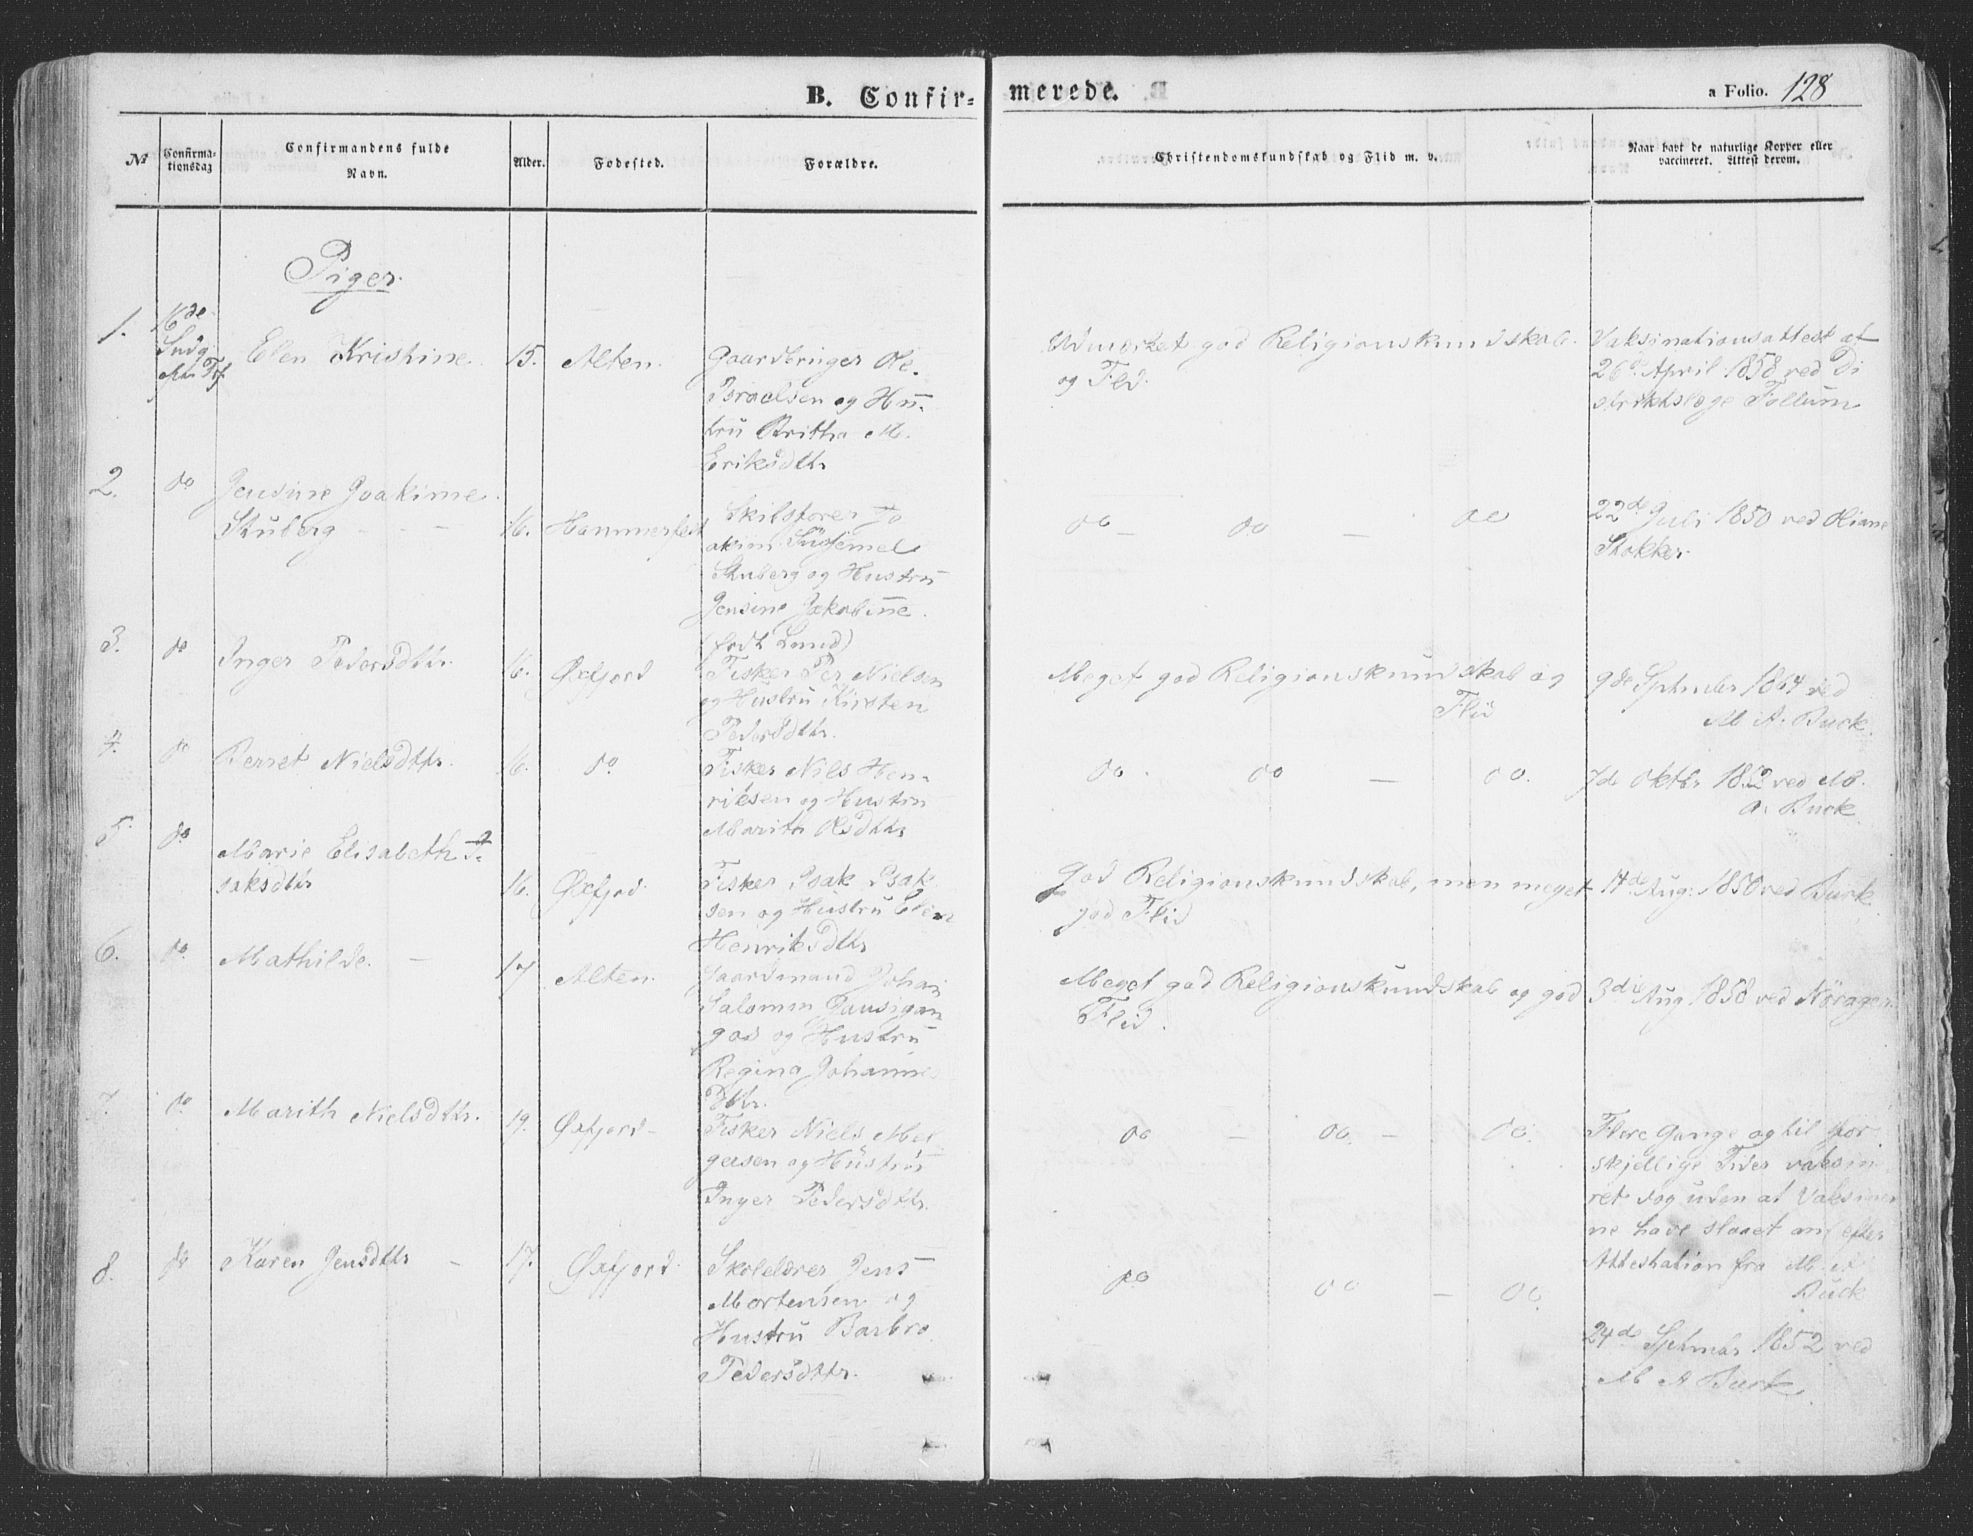 B. Confir-
merede.
a Folio. 128
No
Confirma-
tionsdag
Confirmandens fulde
Navn.
Alder.
Fødested.
Forældre.
Christendomskundskab og Flid m. v.
Naar havt de naturlige Kopper eller
vaccineret. Attest derom.
Piger.
1.
16de
Elen Kristine.
15.
Alten.
Gaardbruger Ole
Israelsen og Hu-
stru Britha M.
Eriksdttr
Udmerket god Religionskundskab
og Flid.
Vaksinationsattest af
26de April 1858 ved Di
striktslæge Follum
2.
do
Jensine Joakime
Stuberg - - -
16.
Hammerfest
Jo
akim
Stuberg og Hustru
Jensine Jakobine
(født Lund)
do - do - do
22de Juli 1850 ved
Stokker
3.
do
Inger Pedersdttr.
16.
Øxfjord
Fisker Per Nielsen
og Hustru Kirsten
Pedersdttr.
Meget god Religionskundskab og
Flid
9de Sptmber 1864 ved
M A. Buck.
4.
do
Berret Nielsdttr.
16.
do.
Fisker Nils Hen-
riksen og Hustru
Marith Olsdttr
do. do - do.
7de Oktbr ved M.
A. Buck
5.
do
Marie Elisabeth I-
saksdttr
16.
Øxfjod.
Fisker Isak Isak
sen og Hustru Elen
Henriksdttr
God Religionskundskab, men meget
god Flid
Aug: 1850 ved Buck
6.
do.
Mathilde. -
17
Alten.
Gaardmand Johan
Salomon
og Hustru
Regina Johannes
Dttr.
Meget god Religionskundskab og god
Flid.
3die Aug 1858 ved Nørager
7.
do.
Marith Nielsdttr.
19.
Øxfjord-
Fisker Niels
og Hustru
Inger Pedersdttr.
do - do. - do.
Flere Gange og til for
skjellige Tider vaksin
ret dog uden at Vaksiner
ne have slaaet an, efter
Attestation fra M. A
Buck
8.
do
Karen Jensdttr -
17.
Øxfjord.
Skolelærer Jens
Mortensen og
Hustru Barbro
Pedersdttr.
do do - do.
24de Sptmbr 1852 ved
M A Buck